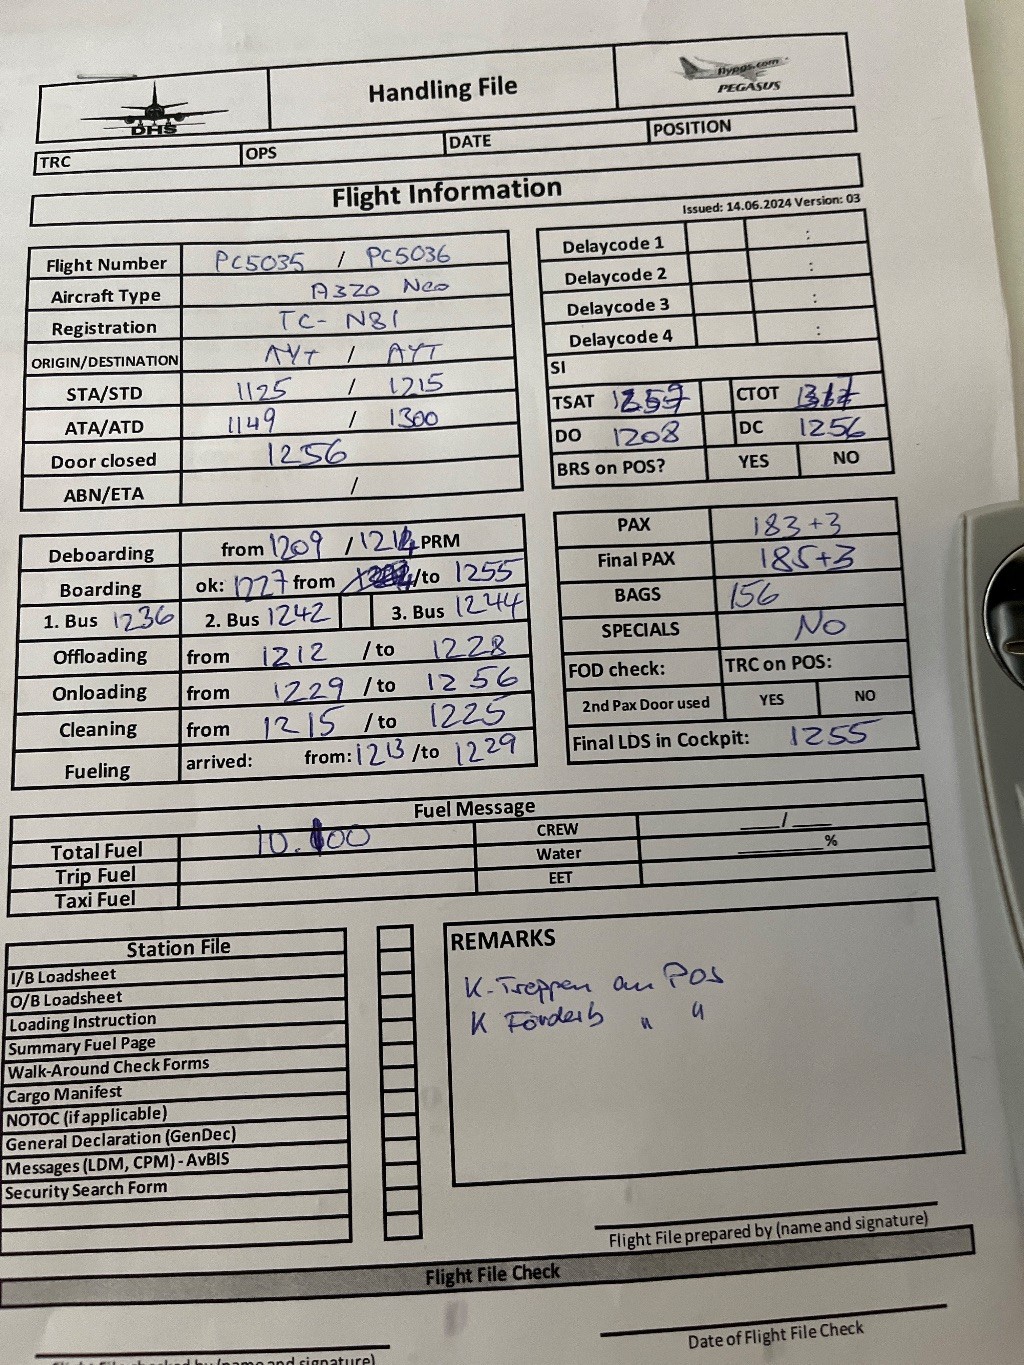 DHS
Handling File
flypgs.com
PEGASUS
TRC OPS DATE POSITION
Flight Information
Issued: 14.06.2024 Version: 03
Flight Number PC5035 / PC5036
Aircraft Type A320 Neo
Registration TC-N81
ORIGIN/DESTINATION AYT / AYT
STA/STD 1125 / 1215
ATA/ATD 1149 / 1300
Door closed 1256
ABN/ETA /
Delaycode 1 :
Delaycode 2 :
Delaycode 3 :
Delaycode 4 :
SI
TSAT CTOT
DO 1208 DC 1256
BRS on POS? YES NO
Deboarding from 1209 / 1214 PRM
Boarding ok: 1227 from /to 1255
1. Bus 1236 2. Bus 1242 3. Bus 1244
Offloading from 1212 / to 1228
Onloading from 1229 / to 1256
Cleaning from 1215 / to 1225
Fueling arrived: from: 1213 /to 1229
PAX 183+3
Final PAX 185+3
BAGS 156
SPECIALS No
FOD check: TRC on POS:
2nd Pax Door used YES NO
Final LDS in Cockpit: 1255
Fuel Message
Total Fuel CREW ___/___
Trip Fuel Water ______%
Taxi Fuel EET
Station File
I/B Loadsheet
O/B Loadsheet
Loading Instruction
Summary Fuel Page
Walk-Around Check Forms
Cargo Manifest
NOTOC (if applicable)
General Declaration (GenDec)
Messages (LDM, CPM) - AvBIS
Security Search Form
REMARKS
K-Treppen an Pos
K Förderb " "
Flight File prepared by (name and signature)
Flight File Check
Date of Flight File Check
(name and signature)